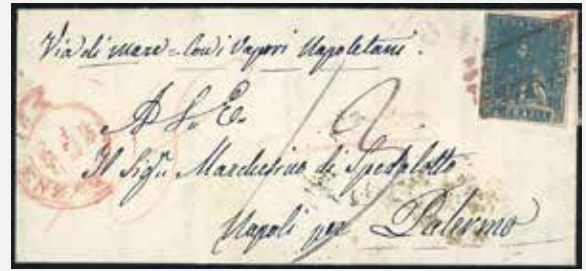 Via di mare = Con i Vapori Napoletani.
A S. E.
Il Sigr. Marchesino di Spedalotto
Napoli per Palermo